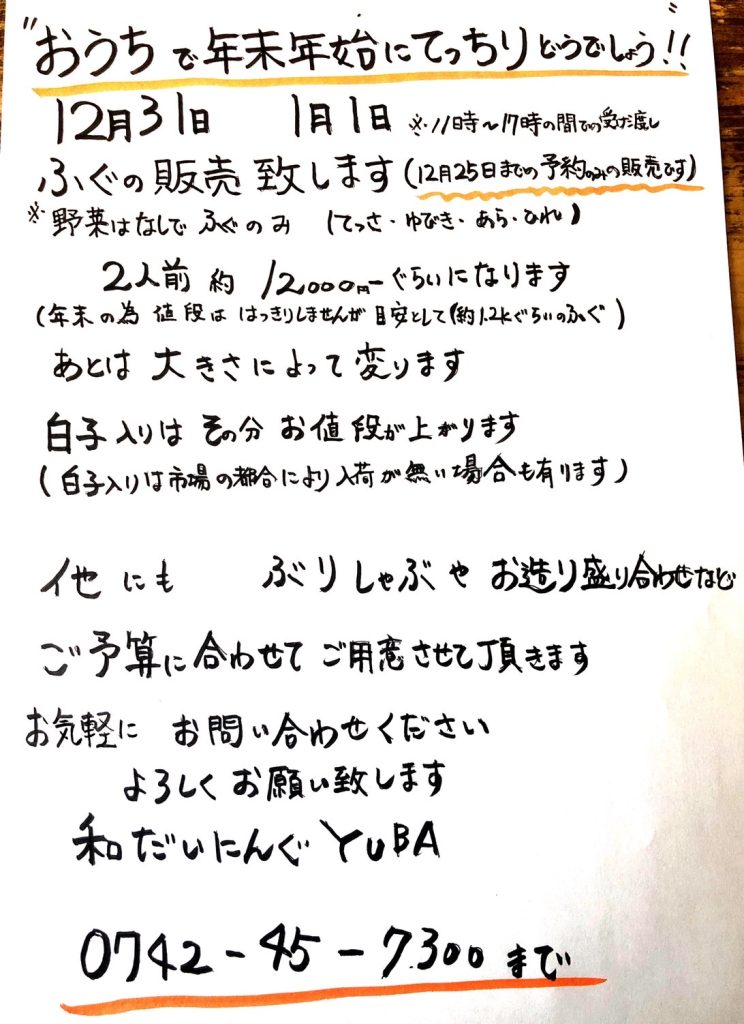 "おうちで年末年始にてっちりどうでしょう!!"
12月31日 1月1日 ※11時〜17時の間での受け渡し
ふぐの販売致します(12月25日までの予約のみの販売です)
※野菜はなしで ふぐのみ (てっさ・ゆびき・あら・ひれ)
2人前 約 12000円ーぐらいになります
(年末の為 値段は はっきりしませんが 目安として(約1.2kぐらいのふぐ)
あとは 大きさによって変ります
白子入りは その分 お値段が上がります
(白子入りは市場の都合により入荷が無い場合も有ります)
他にも ぶりしゃぶや お造り盛り合わせなど
ご予算に合わせて ご用意させて頂きます
お気軽に お問い合わせください
よろしくお願い致します
和だいにんぐ YUBA
0742-45-7300 まで